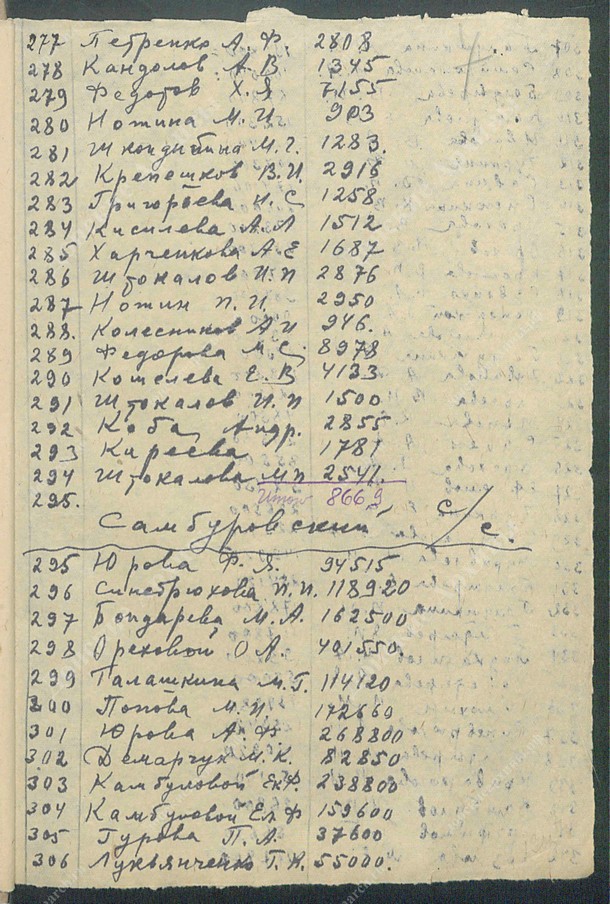 277 Петренко А. Ф. 2808
278 Кандолов А. В 1345
279 Федотов Х. Я 7155
280 Ножина М. И. 903
281 М. Г. 1283.
282 Крепешков В. И. 2916
283 Григорьева И. С 1258
284 Киселева А. Л 1512
285 Харченкова А. Е 1687
286 Штокалов И. П 2876
287 Ножин П. И. 2950
288. Колесников А И 946.
289 Федорова М. С. 8978
290 Кошелева Е. В 4133
291 Штокалов И. П 1500
292 Коба, Андр. 2855
293 Киреева 1781
294 Штокалова М П 2541.
295. Итого 8669
Самбуровский с/с.
295 Юрова Ф. Я. 94515
296 Синебрюхова П. П. 118920
297 Бондарева М. А. 162500
298 Ореховой О А. 401550.
299 Талашкина М. Г. 114120
300 Попова М. И. 172660
301 Юрова А. Ф 268800
302 Демарчук М. К. 82850
303 Камбуловой Ек. Ф. 238800
304 Камбуловой Ел Ф 159600
305 Гурова П. А. 37600
306 Лукьянченко Г. К. 55000.